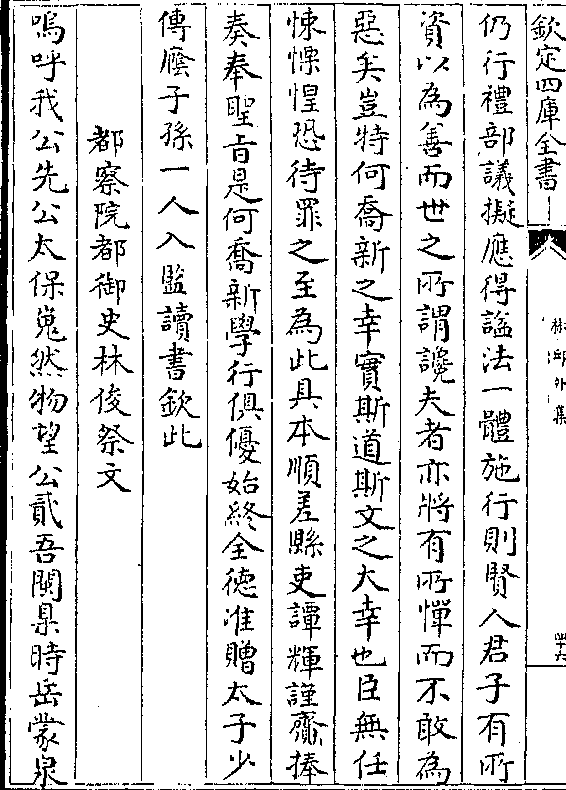 欽定四庫全書
椒邱外集
仍行禮部議擬應得諡法一體施行則賢人君子有所
資以為善而世之所謂讒夫者亦將有所憚而不敢為
惡矣豈特何喬新之幸實斯道斯文之大幸也臣無任
悚慄惶恐待罪之至為此具本順差縣吏譚輝謹齎捧
奏奉聖旨是何喬新學行俱優始終全德准贈太子少
傅廕子孫一人入監讀書欽此
都察院都御史林俊祭文
嗚呼我公先公太保嵬然物望公貳吾閩臬時岳蒙泉